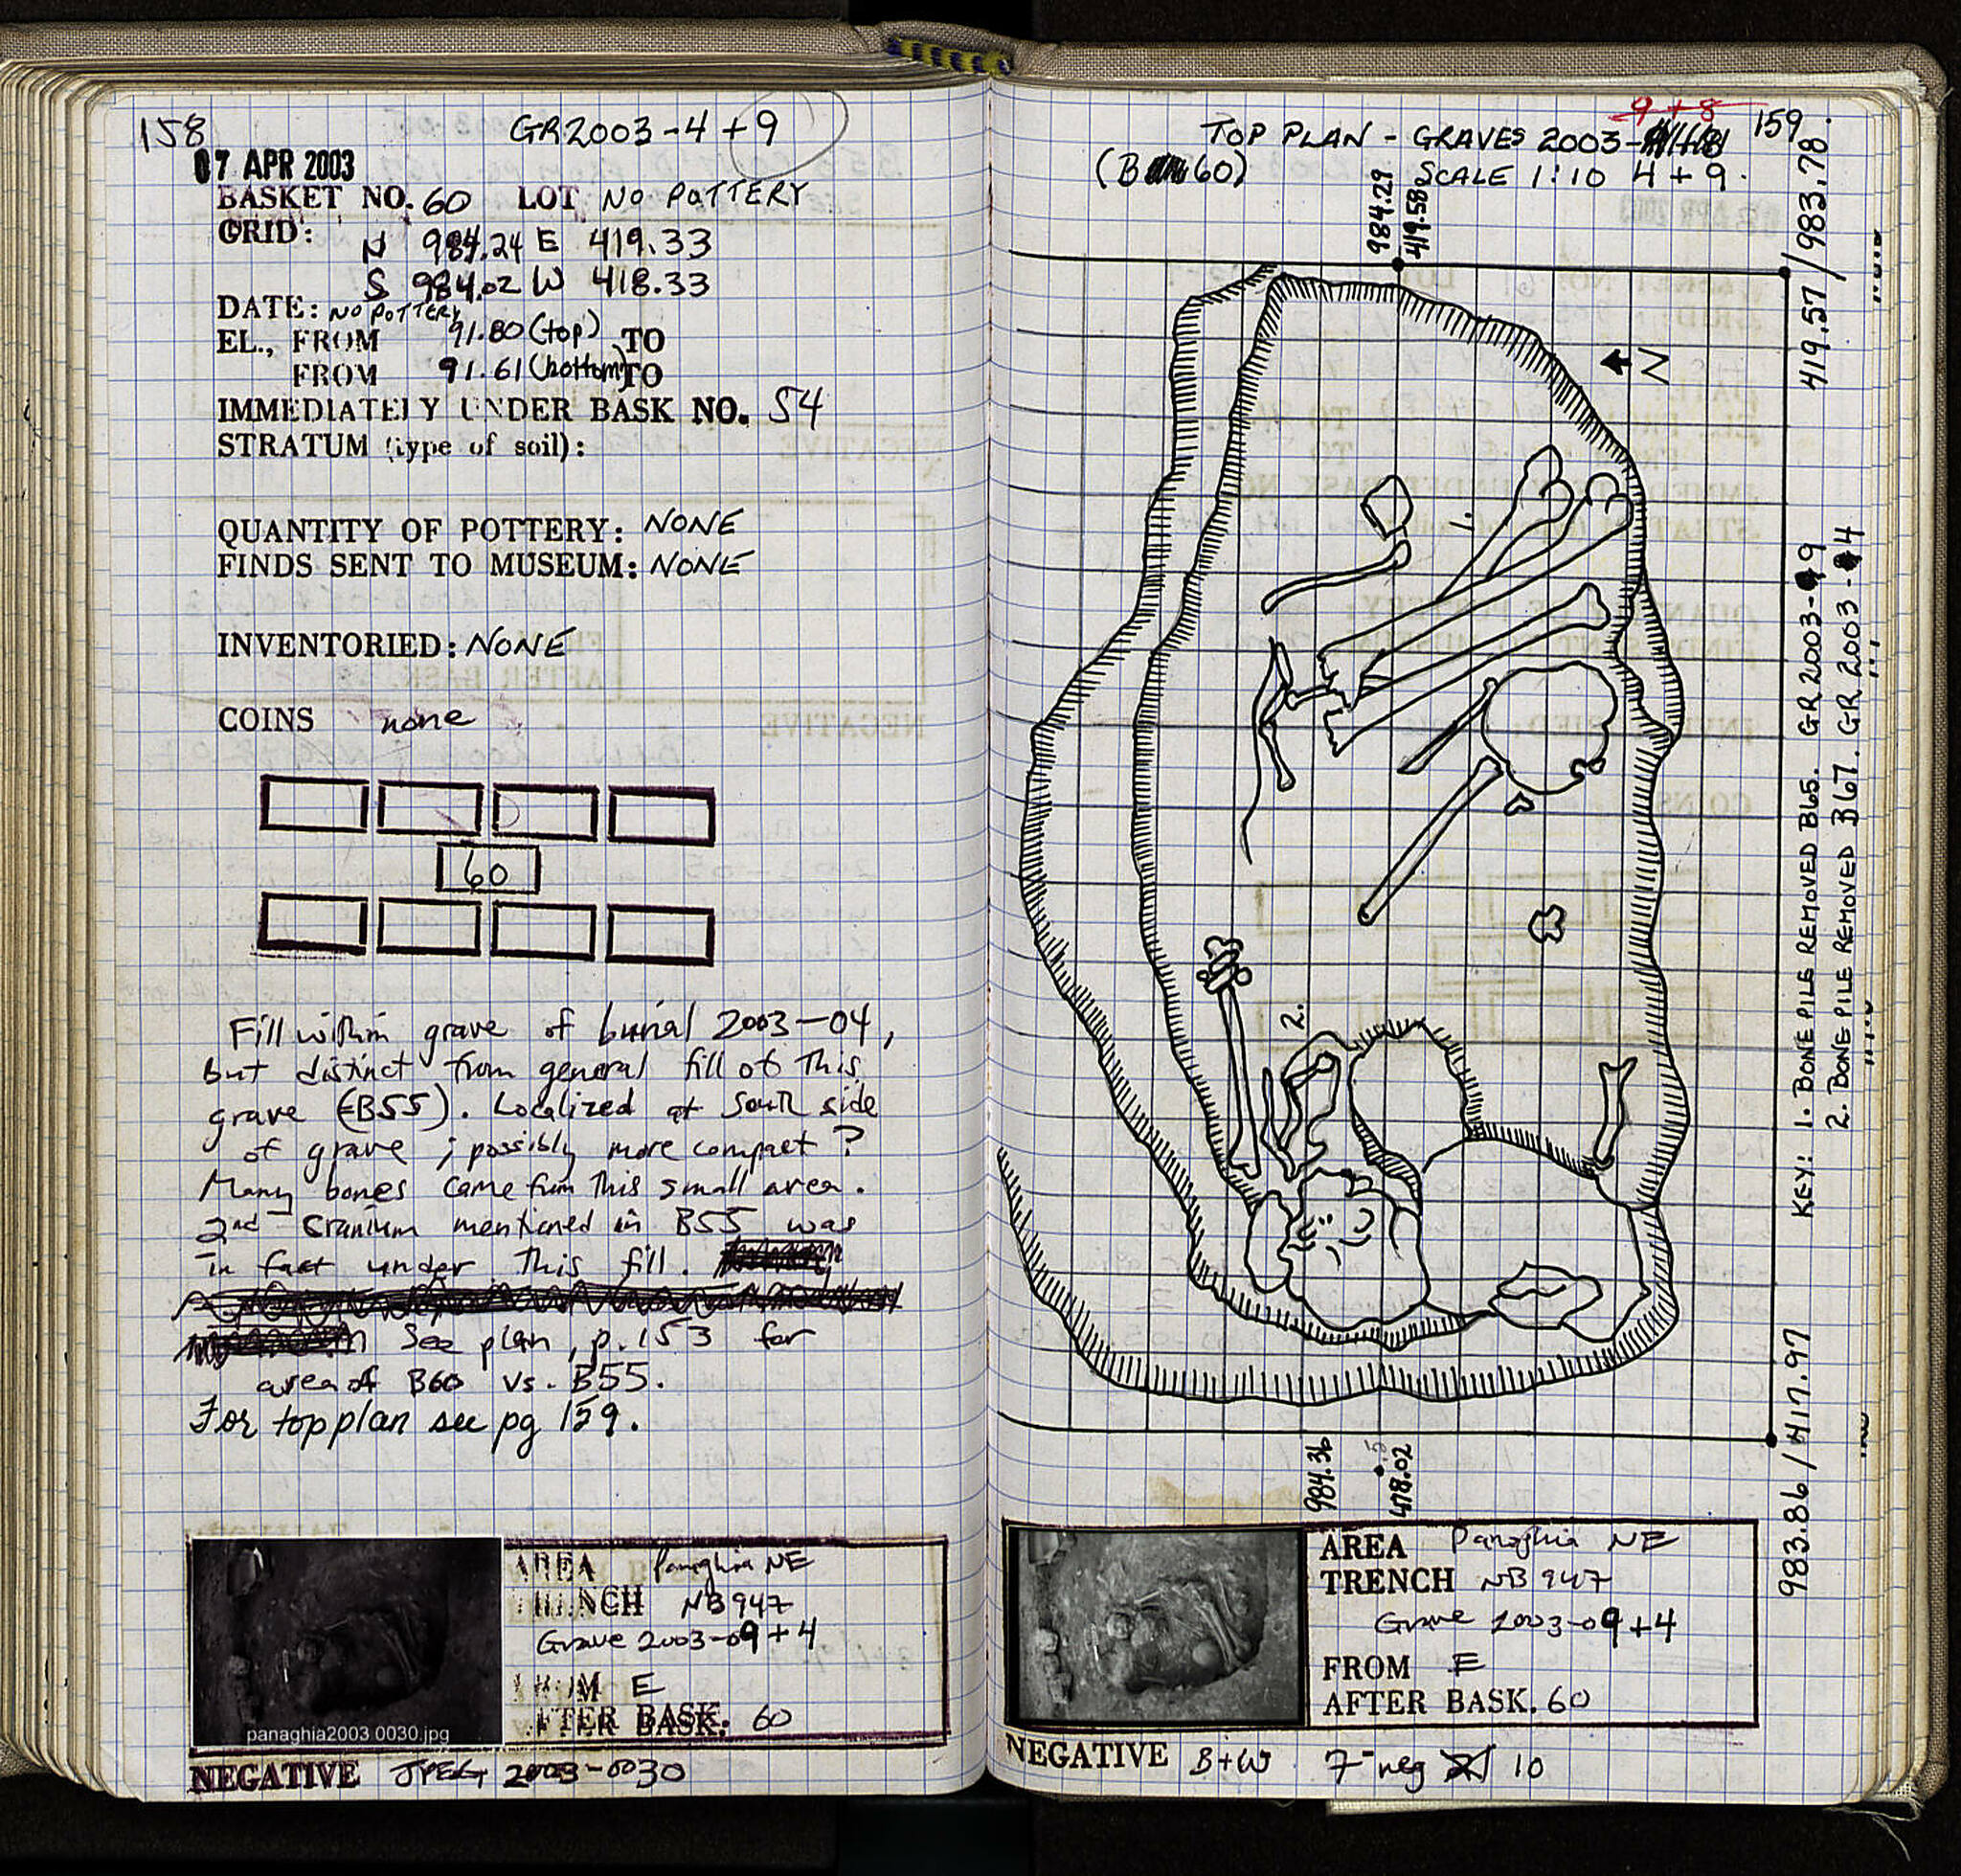 158 GR2003-4+9
07 APR 2003
BASKET NO. 60 LOT NO POTTERY
GRID: N 984.24 E 419.33
S 984.02 W 418.33
DATE: NO POTTERY
EL., FROM 91.80 (top) TO
FROM 91.61 (bottom) TO
IMMEDIATELY UNDER BASK NO. 54
STRATUM (type of soil):
QUANTITY OF POTTERY: NONE
FINDS SENT TO MUSEUM: NONE
INVENTORIED: NONE
COINS none
60
Fill within grave of burial 2003-04,
but distinct from general fill of this
grave (=B55). Localized at South side
of grave; possibly more compact?
Many bones came from this small area.
2nd cranium mentioned in B55 was
in fact under this fill.
See plan, p. 153 for
area of B60 vs. B55.
For top plan see pg 159.
AREA Panaghia NE
TRENCH NB947
Grave 2003-09+4
FROM E
AFTER BASK. 60
panaghia2003 0030.jpg
NEGATIVE JPEG 2003-0030
9+8
TOP PLAN - GRAVES 2003- 159
(B 60) SCALE 1:10 4+9.
984.29
419.58
419.57/983.78.
N
1.
2.
KEY: 1. BONE PILE REMOVED B65. GR 2003-9
2. BONE PILE REMOVED B67. GR 2003-4
984.36
418.02
983.86/417.97
AREA Panaghia NE
TRENCH NB947
Grave 2003-09+4
FROM E
AFTER BASK. 60
NEGATIVE B+W 7-neg 10